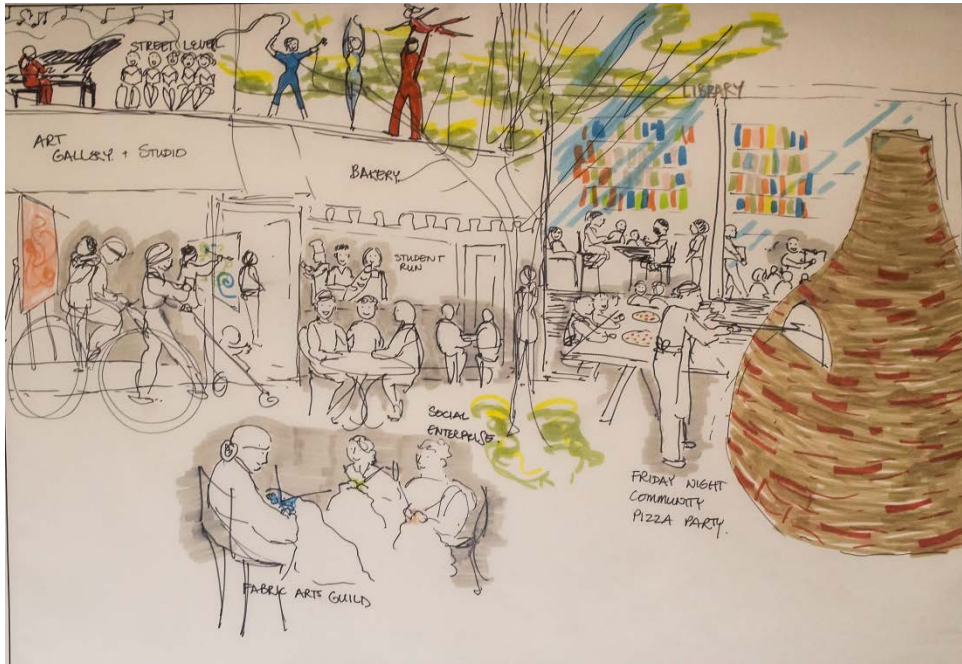 STREET LEVEL
ART
GALLERY + STUDIO
BAKERY
LIBRARY
STUDENT
RUN
SOCIAL
ENTERPRISE.
FRIDAY NIGHT
COMMUNITY
PIZZA PARTY.
FABRIC ARTS GUILD